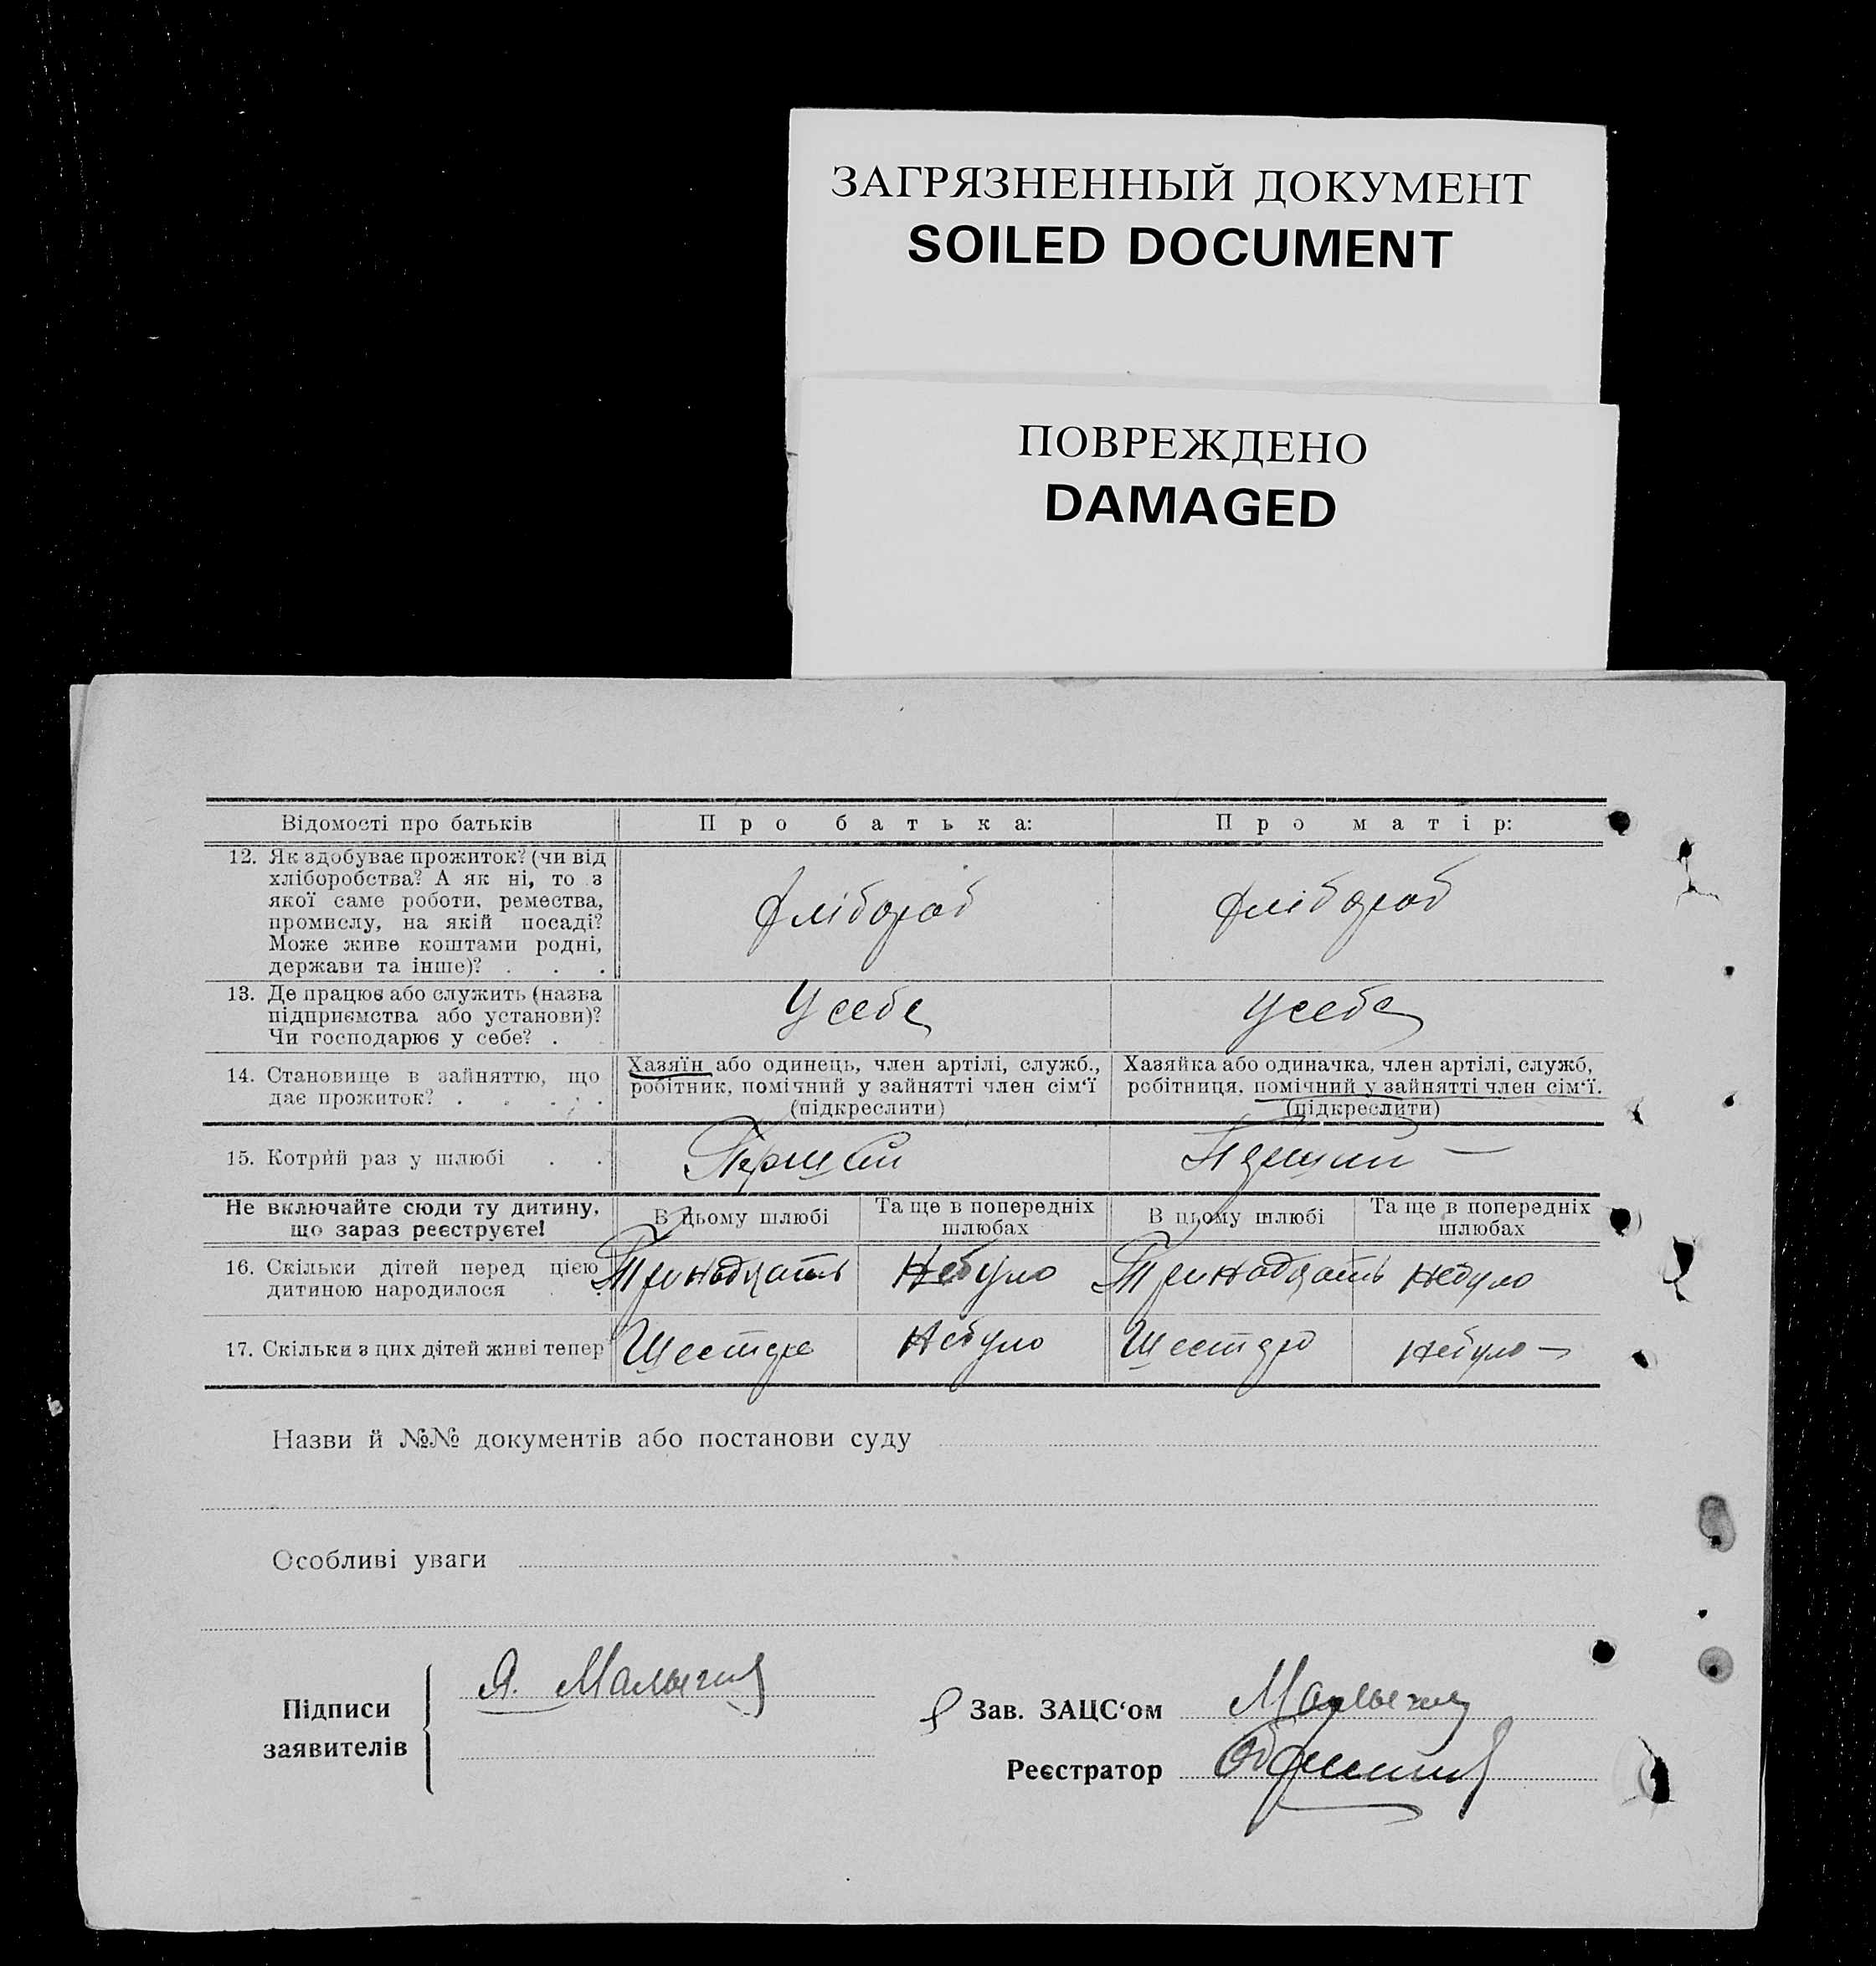 ЗАГРЯЗНЕННЫЙ ДОКУМЕНТ
SOILED DOCUMENT
ПОВРЕЖДЕНО
DAMAGED
Відомості про батьків
Про батька:
Про матір:
12. Як здобуває прожиток? (чи від
хліборобства? А як ні, то з
якої саме роботи, ремества,
промислу, на якій посаді?
Може живе коштами родні,
держави та інше)? . . .
Хлібороб
Хлібороб
13. Де працює або служить (назва
підприємства або установи)?
Чи господарює у себе? .
У себе
У себе
14. Становище в зайняттю, що
дає прожиток? . . . .
Хазяїн або одинець, член артілі, служб.,
робітник, помічний у зайнятті член сім‘ї
(підкреслити)
Хазяйка або одиначка, член артілі, служб,
робітниця, помічний у зайнятті член сім‘ї.
(підкреслити)
15. Котрий раз у шлюбі . .
Перший
Перший —
Не включайте сюди ту дитину,
що зараз реєструєте!
В цьому шлюбі
Та ще в попередніх
шлюбах
В цьому шлюбі
Та ще в попередніх
шлюбах
16. Скільки дітей перед цією
дитиною народилося . .
Тринадцать
Небуло
Тринадцать
Небуло
17. Скільки з цих дітей живі тепер
Шестеро
Небуло
Шестеро
Небуло —
Назви й №№ документів або постанови суду
Особливі уваги
Підписи
заявителів
Я. Малыгин
Зав. ЗАЦС‘ом
Малыгин
Реєстратор